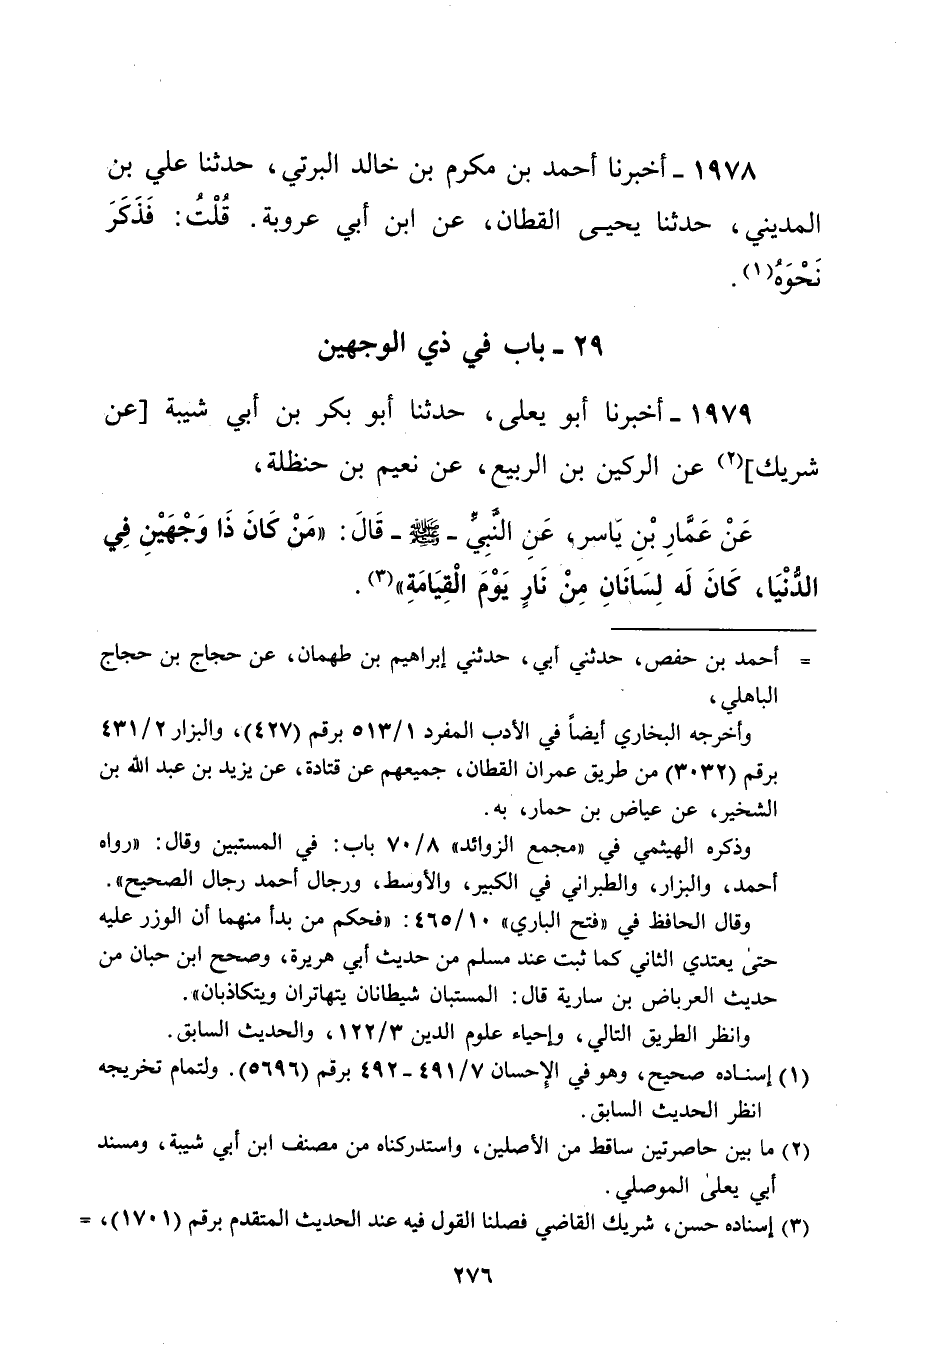 ١٩٧٨ ـ أخبرنا أحمد بن مكرم بن خالد البرتي، حدثنا علي بن
المديني، حدثنا يحيى القطان، عن ابن أبي عروبة. قُلْتُ: فَذَكَرَ
نَحْوَهُ(١).
٢٩ ـ باب في ذي الوجهين
١٩٧٩ ـ أخبرنا أبو يعلى، حدثنا أبو بكر بن أبي شيبة [عن
شريك](٢) عن الركين بن الربيع، عن نعيم بن حنظلة،
عَنْ عَمَّارِ بْنِ يَاسر، عَنِ النَّبِيِّ ـ ﷺ ـ قَالَ: «مَنْ كَانَ ذَا وَجْهَيْنِ فِي
الدُّنْيَا، كَانَ لَه لِسَانَانِ مِنْ نَارٍ يَوْمَ الْقِيَامَةِ»(٣).
= أحمد بن حفص، حدثني أبي، حدثني إبراهيم بن طهمان، عن حجاج بن حجاج
الباهلي،
وأخرجه البخاري أيضاً في الأدب المفرد ٥١٣/١ برقم (٤٢٧)، والبزار ٤٣١/٢
برقم (٣٠٣٢) من طريق عمران القطان، جميعهم عن قتادة، عن يزيد بن عبد الله بن
الشخير، عن عياض بن حمار، به.
وذكره الهيثمي في «مجمع الزوائد» ٧٠/٨ باب: في المستبين وقال: «رواه
أحمد، والبزار، والطبراني في الكبير، والأوسط، ورجال أحمد رجال الصحيح».
وقال الحافظ في «فتح الباري» ٤٦٥/١٠: «فحكم من بدأ منهما أن الوزر عليه
حتىٰ يعتدي الثاني كما ثبت عند مسلم من حديث أبي هريرة، وصحح ابن حبان من
حديث العرباض بن سارية قال: المستبان شيطانان يتهاتران ويتكاذبان».
وانظر الطريق التالي، وإحياء علوم الدين ١٢٢/٣، والحديث السابق.
(١) إسناده صحيح، وهو في الإحسان ٤٩١/٧ ـ ٤٩٢ برقم (٥٦٩٦). ولتمام تخريجه
انظر الحديث السابق.
(٢) ما بين حاصرتين ساقط من الأصلين، واستدركناه من مصنف ابن أبي شيبة، ومسند
أبي يعلىٰ الموصلي.
(٣) إسناده حسن، شريك القاضي فصلنا القول فيه عند الحديث المتقدم برقم (١٧٠١)، =
٢٧٦